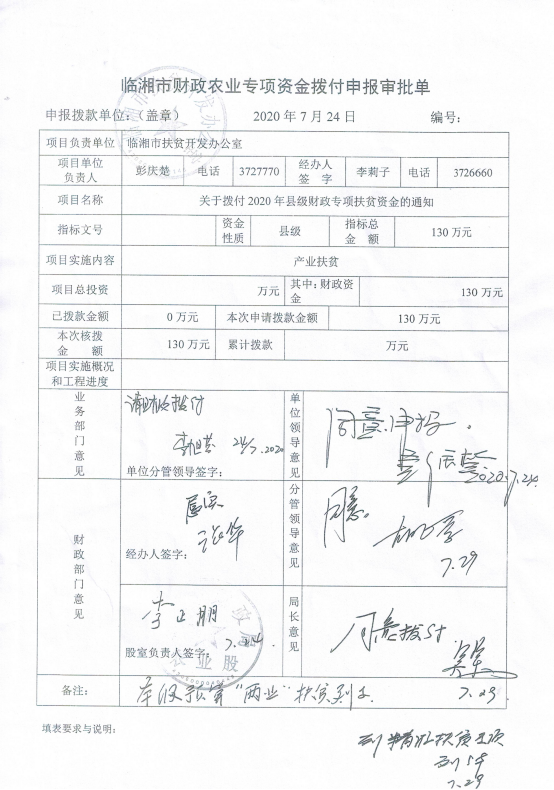 临湘市财政农业专项资金拨付申报审批单
申报拨款单位:（盖章） 2020年7月24日 编号:
项目负责单位 临湘市扶贫开发办公室
项目单位负责人 彭庆楚 电话 3727770 经办人签字 李莉子 电话 3726660
项目名称 关于拨付2020年县级财政专项扶贫资金的通知
指标文号 资金性质 县级 指标总金额 130万元
项目实施内容 产业扶贫
项目总投资 万元 其中:财政资金 130万元
已拨款金额 0万元 本次申请拨款金额 130万元
本次核拨金额 130万元 累计拨款 万元
项目实施概况和工程进度
业务部门意见 请财政拨付 24/7.2020
单位分管领导签字:
单位领导意见 同意申报。 2020.7.24
财政部门意见
经办人签字:
分管领导意见 同意。 7.29
李正明 7.24
股室负责人签字:
农业股
局长意见 同意拨付
7.29
备注:
填表要求与说明:
7.29